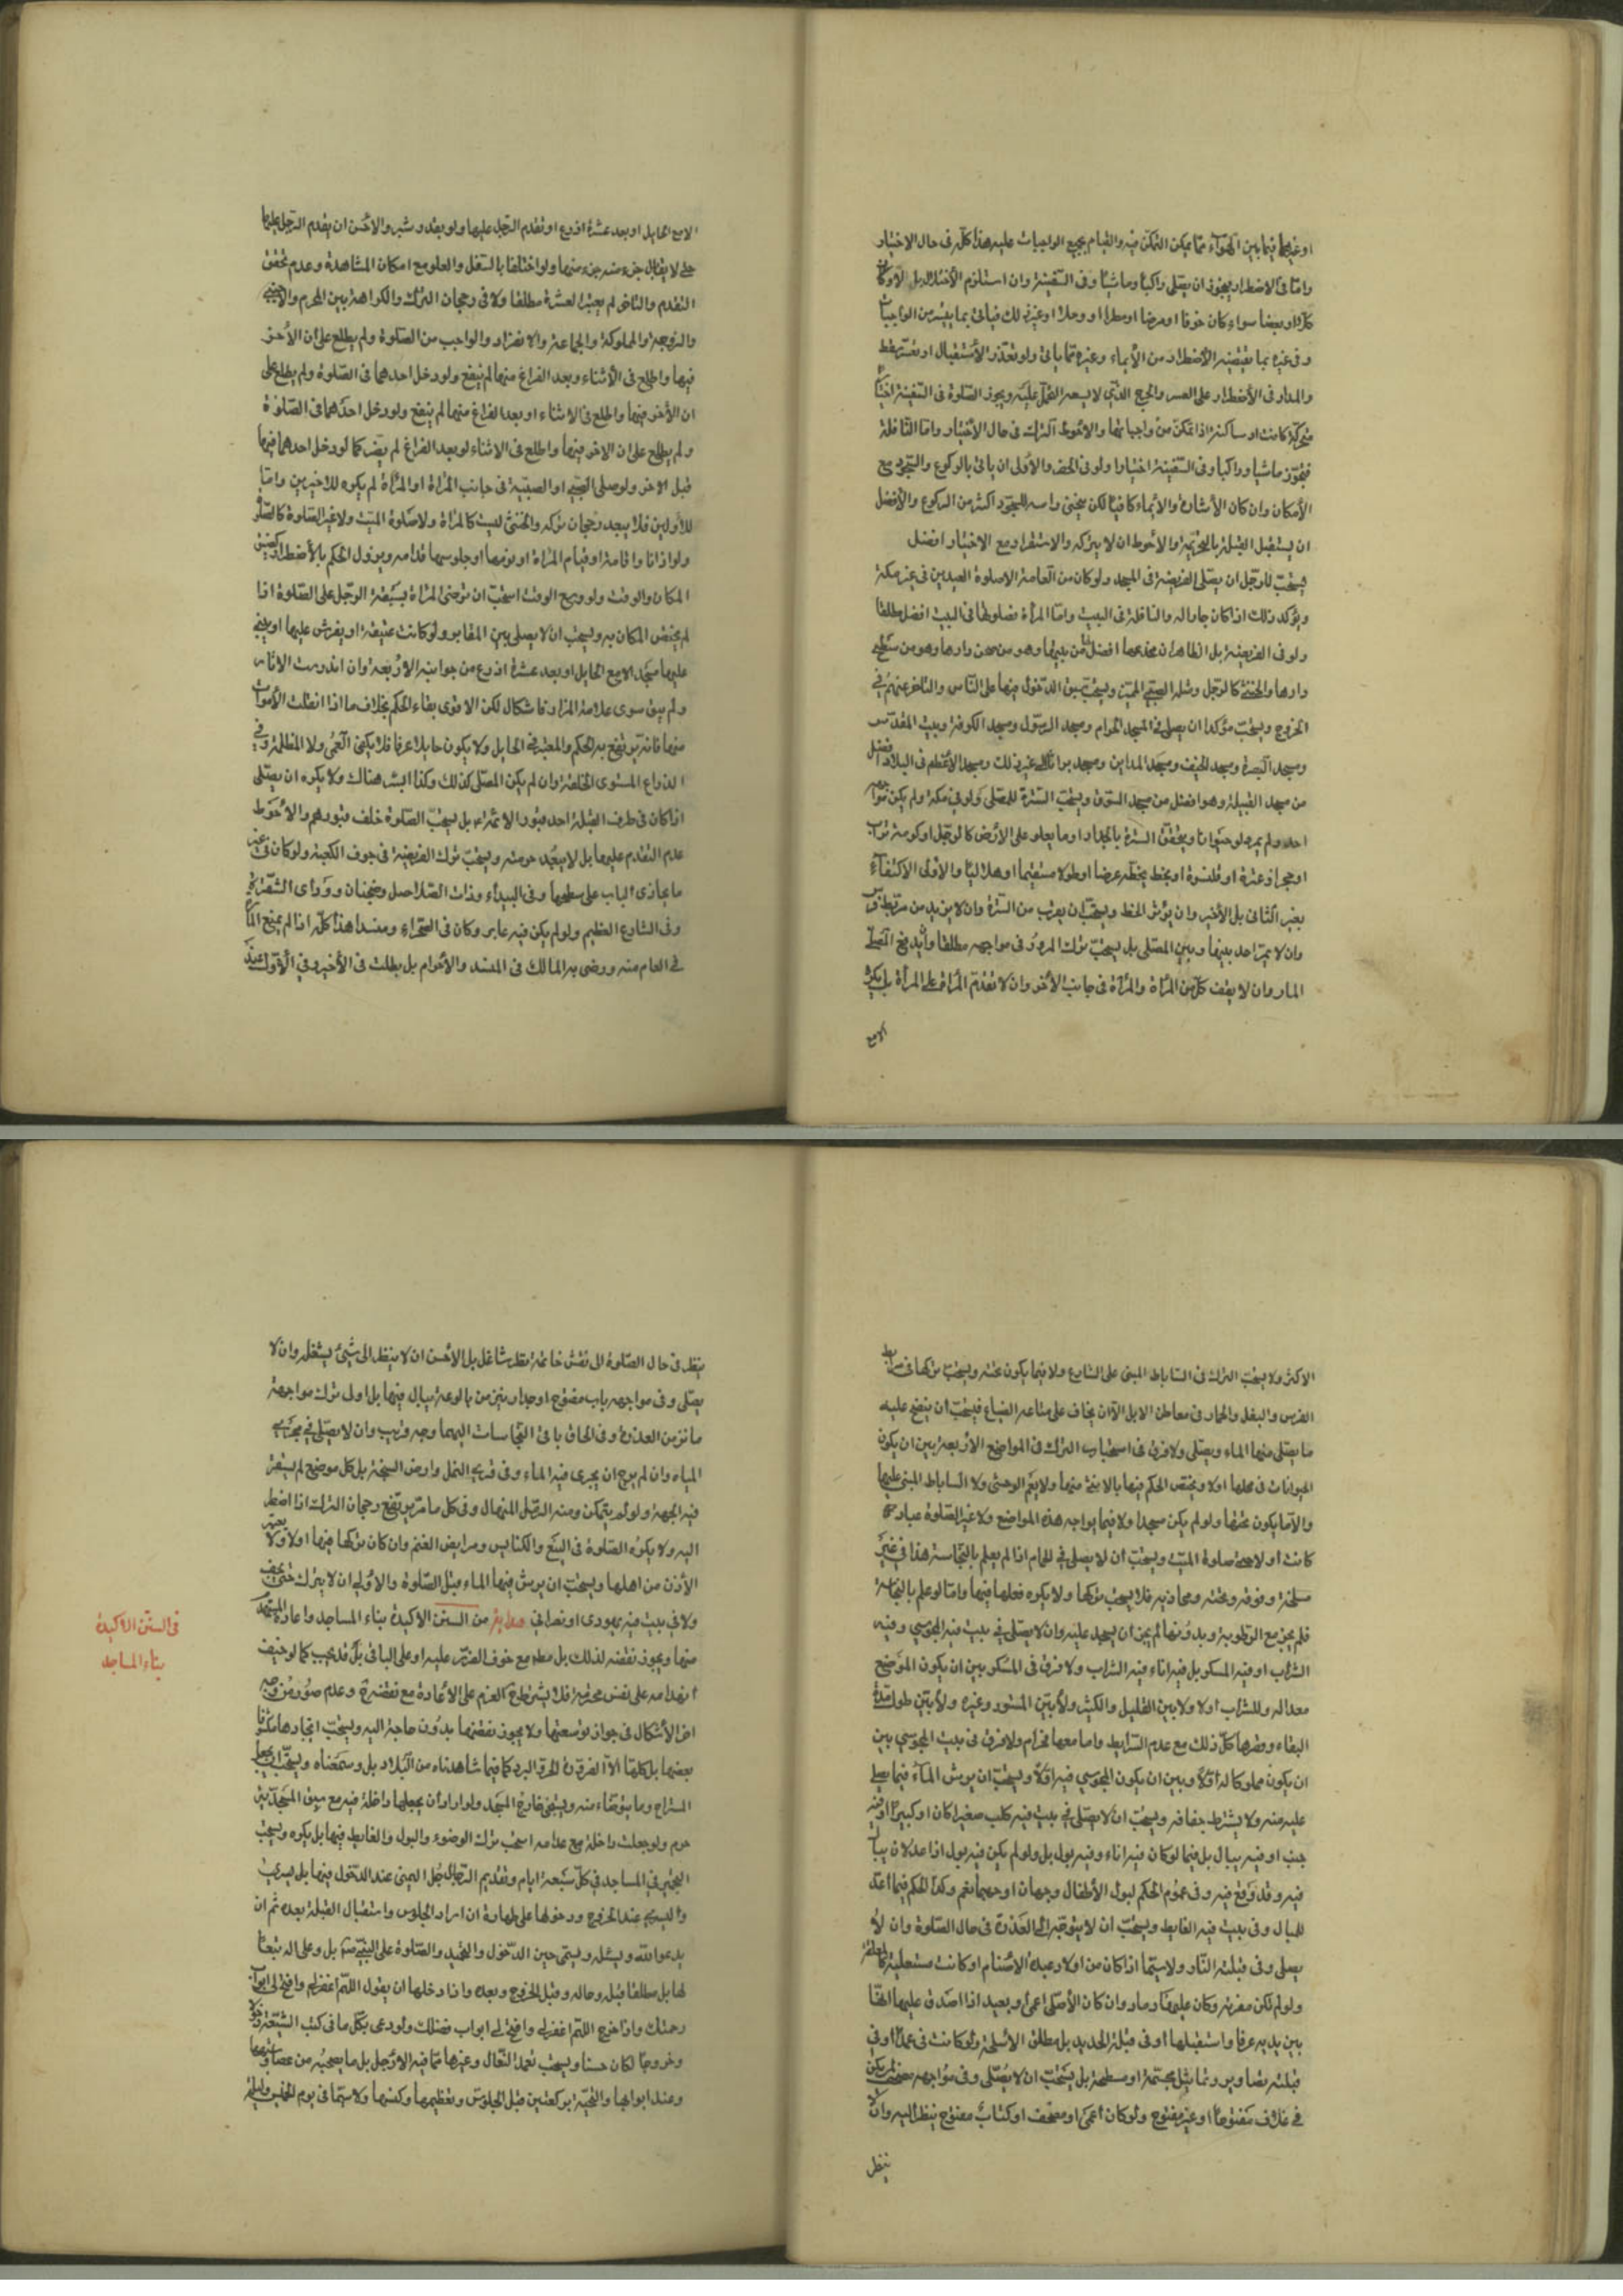 او غيرها فيما بين الهوآء مما يمكن التمكن فيه والقيام بجميع الواجبات عليه هذا كله فى حال الاختيار
واما فى الاضطرار فيجوز ان يصلى راكبا وماشيا وفى السفينة وان استلزم الاخلال بالاركان
كلا او بعضا سواء كان خوفا او مرضا او مطرا او وحلا او غير ذلك فياتى بما يتيسر من الواجبات
وفى غيره بما يقتضيه الاضطرار من الأيماء وغيره مما ياتى ولو تعذر الأستقبال او تعسر سقط
والمدار فى الأضطرار على العسر والحرج الذى لا يسعه التحمل عليه ويجوز الصلوة فى السفينة اختيارا
متحركة كانت او ساكنة اذا تمكن من واجباتها والاحوط الترك فى حال الأختيار واما النافلة
فتجوز ماشيا وراكبا وفى السفينة اختيارا ولو فى الحضر والأولى ان ياتى بالركوع والسجود مع
الأمكان وان كان الأشارة والأيماء كافيا لكن ينحنى راسه للسجود اكثر من الركوع والأفضل
ان يستقبل القبلة بالتحريمة والأحوط ان لا يتركه والاستقرار مع الاختيار افضل
يستحب للرجل ان يصلى الفريضة فى المسجد ولو كان من العامة الا صلوة العيدين فى غير مكة
ويؤكد ذلك اذا كان جارا له والنافلة فى البيت واما المرأة فصلوتها فى البيت افضل مطلقا
ولو فى الفريضة بل الظاهر ان مخدعها افضل من بيتها وهو من صحن دارها وهو من سطح
دارها والخنثى كالرجل ومثله الصبى المميز ويستحب سبق الدخول فيها على الناس والتاخر عنهم فى
الخروج ويستحب مؤكدا ان يصلى فى المسجد الحرام ومسجد الرسول ومسجد الكوفة وبيت المقدس
ومسجد البصرة ومسجد الخيف ومسجد المداين ومسجد براثا الى غير ذلك ومسجد الأعظم فى البلاد افضل
من مسجد القبيلة وهو افضل من مسجد السوق ويستحب السترة للمصلى ولو فى مكة ولم يكن
احد ولم يمر ولو حيوانا ويتحقق السترة بالجدار او ما يعلو على الأرض كالرحل او كومة تراب
او حجر او عنزة او قلنسوة او بخط يخطه عرضا او طولا مستقيما او هلاليا والأولى الاكتفاء
بغير الثانى بل الأخير وان يؤثر الخط ويستحب ان يقرب من السترة وان لا يزيد من
وان لا يمر احد بينها وبين المصلى بل يستحب ترك المرور فى مواجهه مطلقا وان يدفع المصلى
المار وان لا يقف كل من المرأة والمرأة فى جانب الأخر وان لا تتقدم المرأة على المرأة بل يكره
الا مع
الا مع الحايل او بعد عشرة اذرع او تقدم الرجل عليها ولو بقدر شبر والاحسن ان يتقدم الرجل عليها
حتى لا يقابل جزء منه جزء منها ولو اختلفا بالسفل والعلو مع امكان المشاهدة وعدم تحقق
التقدم والتاخر لم يعتبر العشرة مطلقا ولا فى رجحان الترك والكراهة بين المحرم والأجنبى
والزوجة والمملوكة والجماعة والانفراد والواجب من الصلوة ولم يطلع على ان الأخر
فيها واطلع فى الأثناء وبعد الفراغ منها لم ينفع ولو دخل احدهما فى الصلوة ولم يطلع على
ان الأخر فيها واطلع فى الاثناء او بعد الفراغ منها لم ينفع ولو دخل احدهما فى الصلوة
ولم يطلع على ان الاخر فيها واطلع فى الاثناء او بعد الفراغ لم يضر كما لو دخل احدهما فيها
قبل الاخر ولو صلى الصبى او الصبية فى جانب المرأة او المرأة لم يكره للاخيرين واما
للأولين فلا يبعد رجحان تركه والخنثى ليست كالمرأة ولا صلوة الميت ولا غير الصلوة كالصلوة
ولو اذانا واقامة او قيام المرأة او نومها او جلوسها قدامه ويزول الحكم بالأضطرار كضيق
المكان والوقت ولو وسع الوقت استحب ان توخر المرأة بسبقه الرجل على الصلوة اذا
لم يختص المكان به ويستحب ان لا يصلى بين المقابر ولو كانت عتيقة او يفرش عليها او يبنى
عليها مسجد الا مع الحايل او بعد عشرة اذرع من جوانبه الاربعة وان اندرست الاثار
ولم يبق سوى علامة المزار فاشكال لكن الاقوى بقاء الحكم بخلاف ما اذا انتقلت الأموات
منها فانه يرتفع به الحكم والمعتبر فى الحايل ولا يكون حايلا عرفا فلا يكفى العمى ولا الظلمة وفى
الذراع المستوى الخلقة وان لم يكن المصلى كذلك وكذا الشبر هناك ولا يكره ان يصلى
اذا كان فى طرف القبلة احد قبور الائمة بل يستحب الصلوة خلف قبورهم والاحوط
عدم التقدم عليها بل لا يبعد حرمته ويستحب ترك الفريضة فى جوف الكعبة ولو كان فى غير
ما يحاذى الباب على سطحها وفى البيداء وذات الصلاصل وضجنان ووادى الشقرة
وفى الشارع العظيم ولو لم يكن فيه عابر وكان فى الصحراء ومفسدا هذا كله اذا لم يمنع المار
فى العام منه ورضى به المالك فى المفسد والأحرام بل بطلت فى الأخير وفى الأول عند
الاكثر ولا يستحب الترك فى الساباط المبنى على الشارع ولا فيما يكون تحته ويستحب تركها فى مرابط
الفرس والبغل والحمار وفى معاطن الابل الا ان يخاف على متاعه الضياع فيستحب ان ينضح عليه
ما يصلى منها الماء ويصلى ولا فرق فى استحباب الترك فى المواضع الأربعة بين ان يكون
الحيوانات فى محلها اولا ويختص الحكم فيها بالانسية منها ولا يعم الوحشى ولا الساباط المبنى عليها
والا ما يكون تحتها ولو لم يكن مسجدا ولا فيما يواجه هذه المواضع ولا غير الصلوة عبادة
كانت او لا حتى صلوة الميت ويستحب ان لا يصلى فى الحمام اذا لم يعلم بالنجاسة هذا فى غير
مسلخه وفوقه وتحته ومحاذيه فلا يستحب تركها ولا يكره فعلها فيها واما لو علم بالنجاسة
فلم يجز مع الرطوبة وبدونها لم يجز ان يسجد عليه وان لا يصلى فى بيت فيه المجوسى وفيه
الشراب او فيه المسكر بل فيه اناء فيه الشراب ولا فرق فى المسكر بين ان يكون الموضع
معدا له وللشراب اولا ولا بين القليل والكثير ولا بين المستور وغيره ولا بين طول مدة
البقاء وقصرها كل ذلك مع عدم السرايط واما معها فحرام ولا فرق فى بيت المجوسى بين
ان يكون مملوكا له اولا وبين ان يكون المجوسى فيه اولا ويستحب ان يرش الماء فيما يصلى
عليه منه ولا يشترط جفافه ويستحب ان لا يصلى فى بيت فيه كلب صغيرا كان او كبيرا او فيه
جنب او فيه يبال بل فيما لو كان فيه اناء وفيه بول بل ولو لم يكن فيه بول اذا عد لان يبال
فيه وقد وقع فيه وفى عموم الحكم لبول الأطفال وجهان اوجههما نعم وكذا الحكم فيما اعد
للمبال وفى بيت فيه الغايط ويستحب ان لا يتوجه الى العذرة فى حال الصلوة وان لا
يصلى وفى قبلته النار ولا سيما اذا كان من اولاد عبدة الاصنام او كانت مستعلية كالمعلقة
ولو لم تكن مضرمة وكان عليها رماد وان كان الأصلى اعمى وبعيد اذا صدق عليها انها
بين يديه عرفا واستقبلها او فى قبلته الحديد بل مطلق الاسلحة ولو كانت فى غمد او فى
قبلته تصاوير وتماثيل مجسمة او مسطحة بل يستحب ان لا يصلى وفى مواجهه مصحف لم يكن
فى غلاف مفتوحا او غير مفتوح ولو كان اعمى او مصحف او كتاب مفتوح ينظر اليه وان لا
ينظر
ينظر فى حال الصلوة الى نقش خاتمه نظر شاغل بل الأحسن ان لا ينظر الى شئ يشغله وان لا
يصلى وفى مواجهه باب مفتوح او جدار ينز من بالوعة يبال فيها بل اولى ترك مواجهة
ما نز من العذرة وفى الحاق باقى النجاسات اليهما وجه قريب وان لا يصلى فى مجرى
المياه وان لم يرج ان يجرى فيه الماء وفى قرية النمل وارض السبخة بل كل موضع لم يستقر
فيه الجبهة ولو لم يتمكن ومنه الرمل المنهال وفى كل ما مر يرتفع رجحان الترك اذا اضطر
اليه ولا يكره الصلوة فى البيع والكنايس ومرابض الغنم وان كان تركها فيها اولا ولا يعتبر
الأذن من اهلها ويستحب ان يرش فيها الماء قبل الصلوة والأولى ان لا يترك حتى يجف
ولا فى بيت فيه يهودى او نصرانى هداية من السنن الاكيدة بناء المساجد واعادة المستهدم
منها ويجوز نقضه لذلك بل مطلقا مع خوف الضرر عليه او على الباقى بل قد يجب كما لو خيف
انهدامه على نفس محترمة فلا يشترط فى العزم على الأعادة مع نقضه وعدم ضرورة
اخر الأشكال فى جواز توسعتها ولا يجوز نقضها بدون حاجة اليه ويستحب اتخاذها مكشوفا
بعضها بل كلها الا لضرورة الحر والبرد كما فيما شاهدناه من البلاد بل وسمعناه ويستحب ان يجعل
السراج وما يتوضاء منه ويستنجى خارج المسجد ولو اراد ان يجعلها داخلة فيه مع سبق المسجدية
حرم ولو جعلت داخلة مع عدامه استحب ترك الوضوء والبول والغايط فيها بل يكره ويستحب
التجمير فى المساجد فى كل سبعة ايام وتقديم الرجل اليمنى عند الدخول فيها بل يستحب
واليسرى عند الخروج ودخولها على طهارة ان اراد الجلوس واستقبال القبلة بعده ثم ان
يدعو الله ويسئله ويسمى حين الدخول والتحميد والصلوة على النبى بل وعلى اله تبعا
لها بل مطلقا قبله وحاله وقبل الخروج وبعده واذا دخلها ان يقول اللهم اغفر لى وافتح لى ابواب
رحمتك واذا خرج اللهم اغفر لى وافتح لى ابواب فضلك ولو دعى بكل ما فى كتب الشيعة دخولا
وخروجا لكان حسنا ويستحب تعهد النعال وغيرها مما فيه الارجل بل ما يصحبه من عصا وغيرها
وعند ابوابها والتحية بركعتين قبل الجلوس وتعظيمها وكنسها ولا سيما فى يوم الخميس وليلة
فى السنن الاكيدة
بناء المساجد